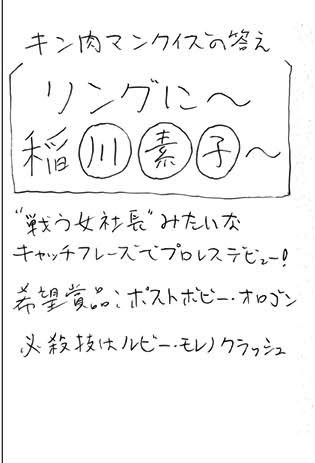 キン肉マンクイズの答え
リングに〜
稲川素子〜
"戦う女社長"みたいな
キャッチフレーズでプロレスデビュー!
希望賞品:ポストボビー・オロゴン
必殺技はルビー・モレノクラッシュ